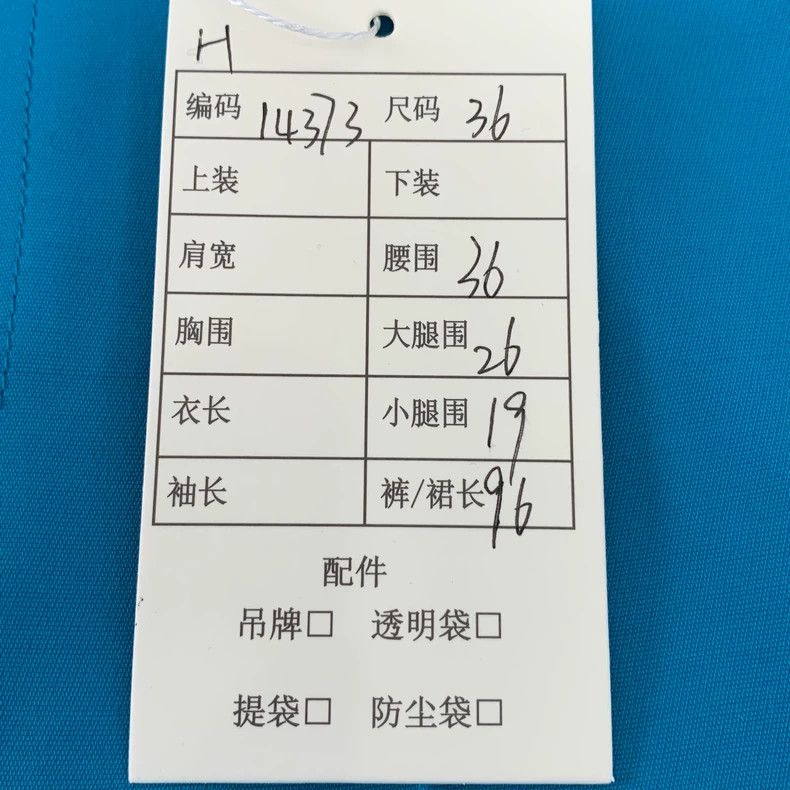 H
编码 14373 尺码 36
上装 下装
肩宽 腰围 36
胸围 大腿围 26
衣长 小腿围 19
袖长 裤/裙长 96
配件
吊牌□ 透明袋□
提袋□ 防尘袋□